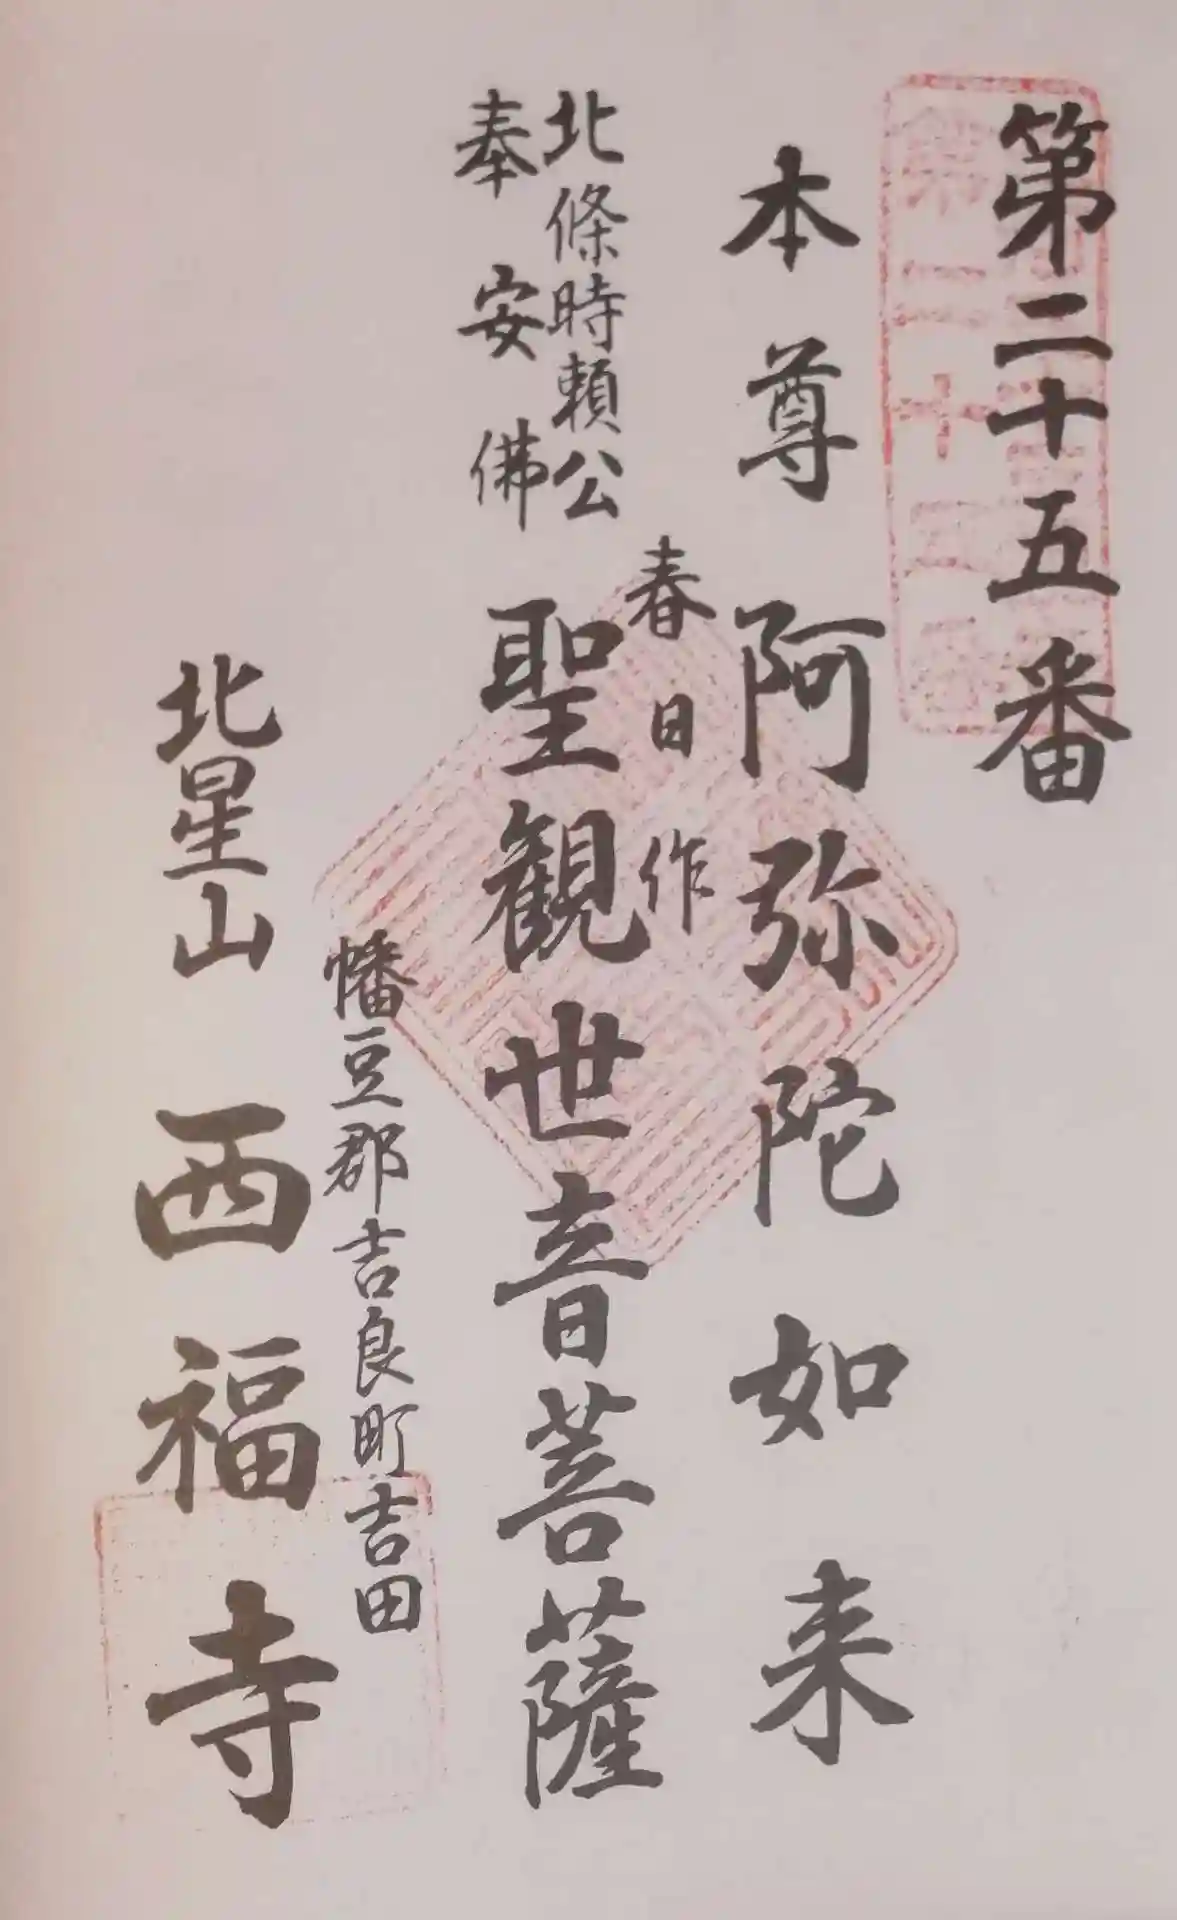 第二十五番
本尊 阿弥陀如来
春日作
北條時頼公
奉安佛
聖観世音菩薩
幡豆郡吉良町吉田
北星山 西福寺